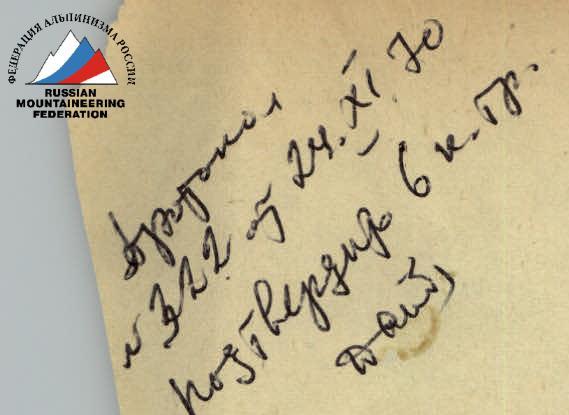 ФЕДЕРАЦИЯ АЛЬПИНИЗМА РОССИИ
RUSSIAN
MOUNTAINEERING
FEDERATION
протокол
№ 322 от 24.XI.70
подтвержд 6 к. тр.